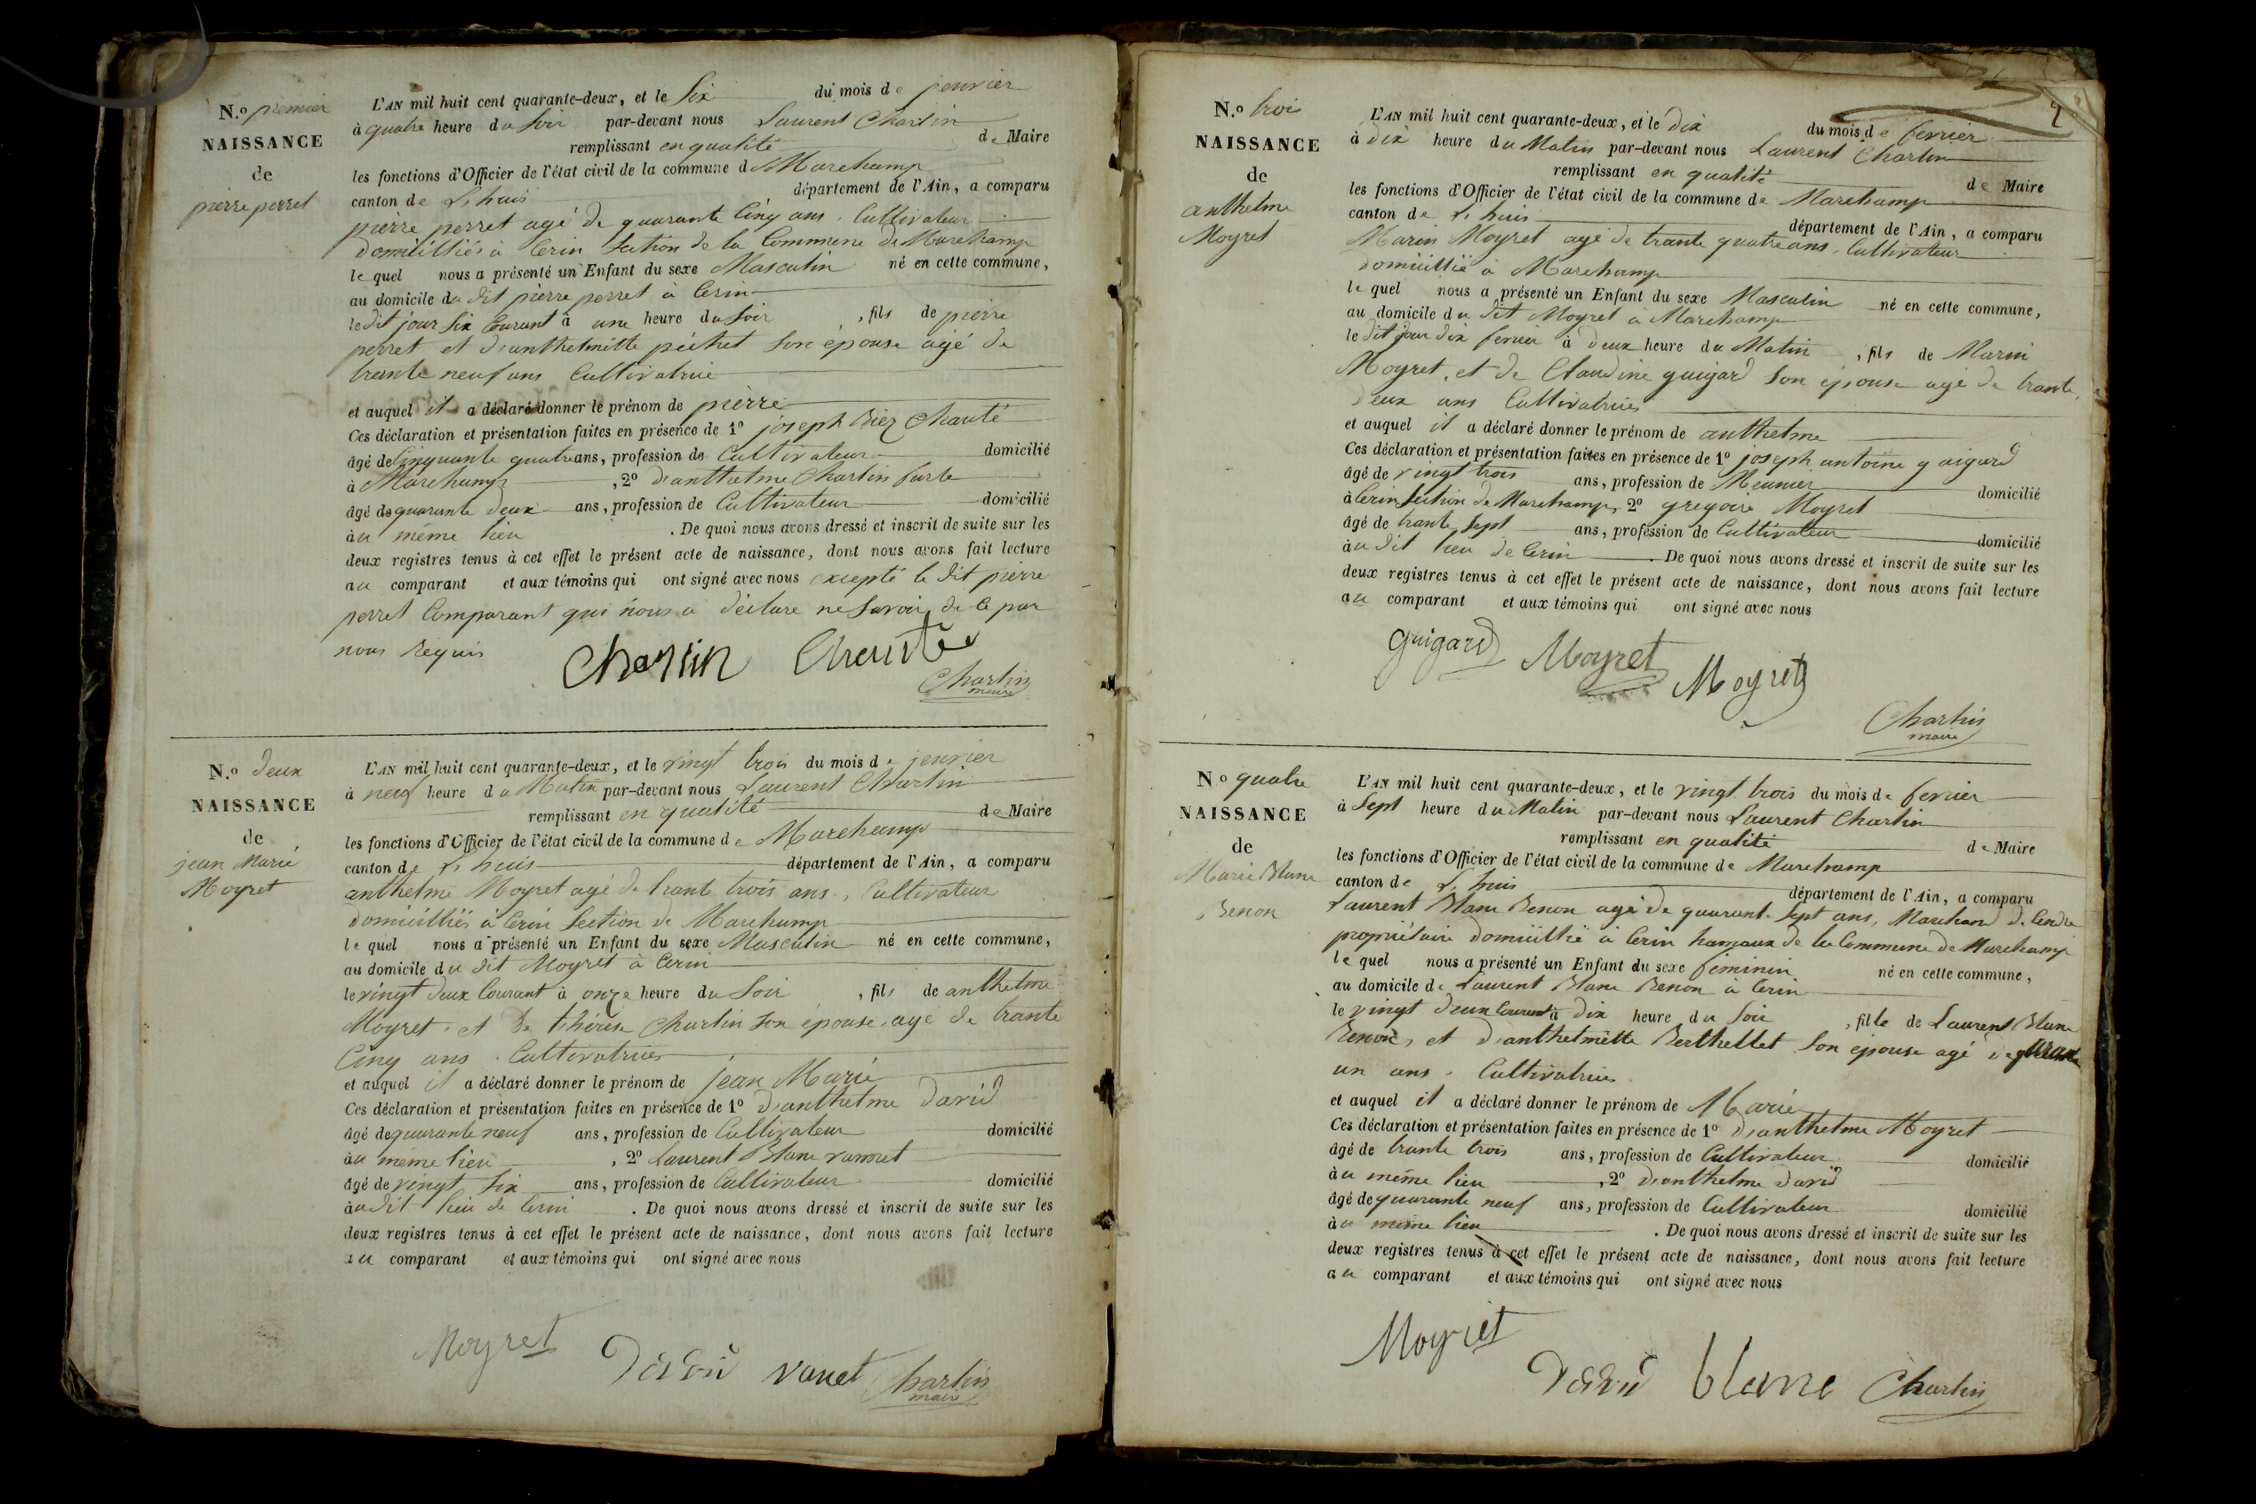 N.o premier
NAISSANCE
de
pierre perret
L'AN mil huit cent quarante-deux, et le Six du mois de jenvier
à quatre heure du Soir par-devant nous Laurent Chartin
remplissant en qualité de Maire
les fonctions d'Officier de l'état civil de la commune de Marchamp
canton de L'huis département de l'Ain, a comparu
pierre perret agé de quarante Cinq ans, Cultivateur
domicilliés à Cerin Section de la Commune de Marchamp
le quel nous a présenté un Enfant du sexe Masculin né en cette commune,
au domicile du dit pierre perret à Cerin
le dit jour Six Courant à une heure du Soir, fils de pierre
perret et d'anthelmette son épouse agé de
trante neuf ans Cultivatrice
et auquel il a déclaré donner le prénom de pierre
Ces déclaration et présentation faites en présence de 1o joseph Biez Chanté
âgé de Cinquante quatre ans, profession de Cultivateur domicilié
à Marchamp, 2o d'anthelme Chartin
âgé de quarante deux ans, profession de Cultivateur domicilié
au même lieu. De quoi nous avons dressé et inscrit de suite sur les
deux registres tenus à cet effet le présent acte de naissance, dont nous avons fait lecture
au comparant et aux témoins qui ont signé avec nous excepté le dit pierre
perret Comparant qui nous a déclare ne Savoir de Ce par
nous Requis
Chartin
Chartin
maire
N.o deux
NAISSANCE
de
jean Marie
Moyret
L'AN mil huit cent quarante-deux, et le vingt trois du mois de jenvier
à neuf heure du Matin par-devant nous Laurent Chartin
remplissant en qualité de Maire
les fonctions d'Officier de l'état civil de la commune de Marchamp
canton de L'huis département de l'Ain, a comparu
anthelme Moyret agé de trante trois ans, Cultivateur
domicilliés à Cerin Section de Marchamp
le quel nous a présenté un Enfant du sexe Masculin né en cette commune,
au domicile du dit Moyret à Cerin
le vingt deux Courant à onze heure du Soir, fils de anthelme
Moyret, et de thérese Chartin son épouse, agé de trante
Cinq ans. Cultivatrices
et auquel il a déclaré donner le prénom de jean Marie
Ces déclaration et présentation faites en présence de 1o d'anthelme david
âgé de quarante neuf ans, profession de Cultivateur domicilié
au même lieu, 2o Laurent Blanc
âgé de vingt Six ans, profession de Cultivateur domicilié
au dit lieu de Cerin. De quoi nous avons dressé et inscrit de suite sur les
deux registres tenus à cet effet le présent acte de naissance, dont nous avons fait lecture
au comparant et aux témoins qui ont signé avec nous
Moyret
David vanet Chartin
maire
2
N.o trois
NAISSANCE
de
anthelme
Moyret
L'AN mil huit cent quarante-deux, et le dix du mois de fevrier
à dix heure du Matin par-devant nous Laurent Chartin
remplissant en qualité de Maire
les fonctions d'Officier de l'état civil de la commune de Marchamp
canton de L'huis département de l'Ain, a comparu
Marin Moyret agé de trante quatre ans, Cultivateur
domicillié à Marchamp
le quel nous a présenté un Enfant du sexe Masculin né en cette commune,
au domicile du dit Moyret à Marchamp
le dit jour dix fevrier à deux heure du Matin, fils de Marin
Moyret, et de Claudine guigard Son épouse agé de trante
deux ans Cultivatrices
et auquel il a déclaré donner le prénom de anthelme
Ces déclaration et présentation faites en présence de 1o joseph antoine gaigard
âgé de vingt trois ans, profession de Meunier domicilié
à Cerin Section de Marchamp, 2o gregoire Moyret
âgé de trante Sept ans, profession de Cultivateur domicilié
au dit lieu de Cerin. De quoi nous avons dressé et inscrit de suite sur les
deux registres tenus à cet effet le présent acte de naissance, dont nous avons fait lecture
au comparant et aux témoins qui ont signé avec nous
guigard Moyret Moyret
Chartin
maire
No quatre
NAISSANCE
de
Marie Blanc
Benon
L'AN mil huit cent quarante-deux, et le vingt trois du mois de fevrier
à Sept heure du Matin par-devant nous Laurent Chartin
remplissant en qualité de Maire
les fonctions d'Officier de l'état civil de la commune de Marchamp
canton de L'huis département de l'Ain, a comparu
Laurent Blanc Benon agé de quarante Sept ans, Marchand de Cendre
propriétaire domicillié à Cerin hameaux de la Commune de Marchamp
le quel nous a présenté un Enfant du sexe feminin né en cette commune,
au domicile de Laurent Blanc Benon à Cerin
le vingt deux Courant à dix heure du Soir, fille de Laurent Blanc
Benon, et d'anthelmette Berthellet Son épouse agé de quarante
un ans. Cultivatrices
et auquel il a déclaré donner le prénom de Marie
Ces déclaration et présentation faites en présence de 1o d'anthelme Moyret
âgé de trante trois ans, profession de Cultivateur domicilié
au même lieu, 2o d'anthelme david
âgé de quarante neuf ans, profession de Cultivateur domicilié
au même lieu. De quoi nous avons dressé et inscrit de suite sur les
deux registres tenus à cet effet le présent acte de naissance, dont nous avons fait lecture
au comparant et aux témoins qui ont signé avec nous
Moyret
David blanc Chartin